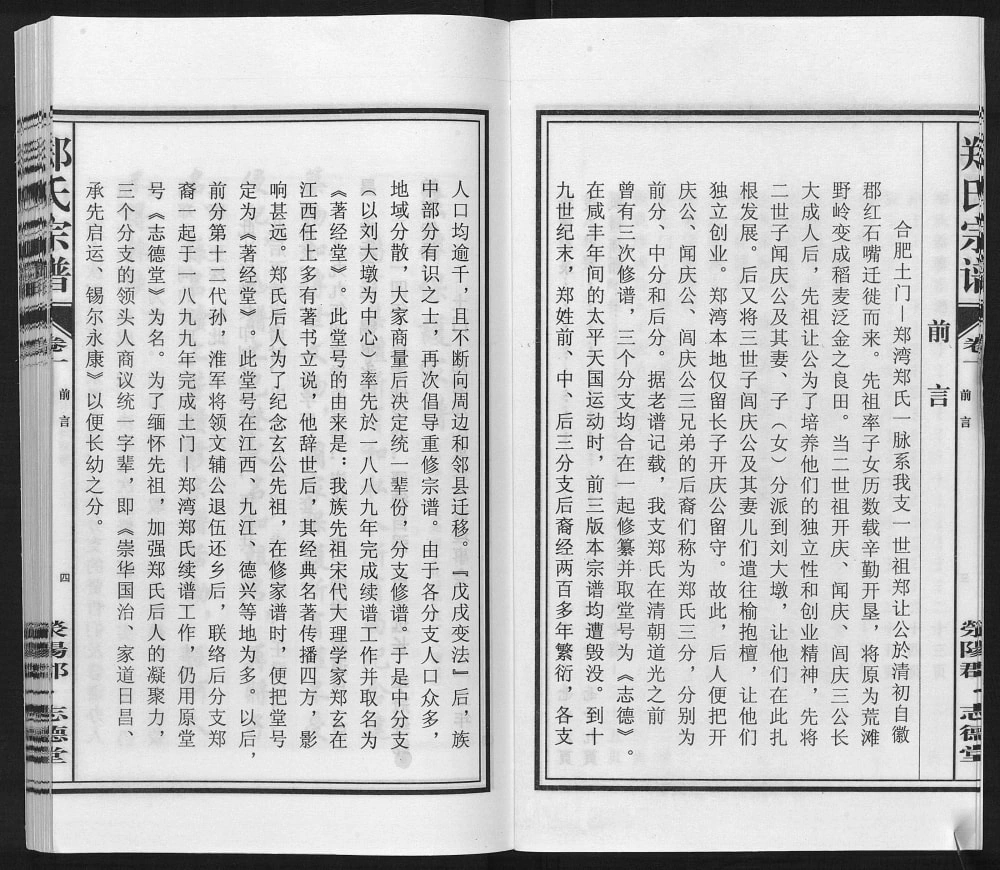 郑氏宗谱
卷一
前言
荥陽郡 志德堂
前言
合肥土门—郑湾郑氏一脉系我支一世祖郑让公於清初自徽
郡红石嘴迁徙而来。先祖率子女历数载辛勤开垦，将原为荒滩
野岭变成稻麦泛金之良田。当二世祖开庆、闻庆、闾庆三公长
大成人后，先祖让公为了培养他们的独立性和创业精神，先将
二世子闻庆公及其妻、子（女）分派到刘大墩，让他们在此扎
根发展。后又将三世子闾庆公及其妻儿们遣往榆抱檀，让他们
独立创业。郑湾本地仅留长子开庆公留守。故此，后人便把开
庆公、闻庆公、闾庆公三兄弟的后裔们称为郑氏三分，分别为
前分、中分和后分。据老谱记载，我支郑氏在清朝道光之前
曾有三次修谱，三个分支均合在一起修纂并取堂号为《志德》。
在咸丰年间的太平天国运动时，前三版本宗谱均遭毁没。到十
九世纪末，郑姓前、中、后三分支后裔经两百多年繁衍，各支
人口均逾千，且不断向周边和邻县迁移。『戊戌变法』后，族
中部分有识之士，再次倡导重修宗谱。由于各分支人口众多，
地域分散，大家商量后决定统一辈份，分支修谱。于是中分支
（以刘大墩为中心）率先於一八八九年完成续谱工作并取名为
《著经堂》。此堂号的由来是：我族先祖宋代大理学家郑玄在
江西任上多有著书立说，他辞世后，其经典名著传播四方，影
响甚远。郑氏后人为了纪念玄公先祖，在修家谱时，便把堂号
定为《著经堂》。此堂号在江西、九江、德兴等地为多。以后，
前分第十二代孙，淮军将领文辅公退伍还乡后，联络后分支郑
裔一起于一八九九年完成土门—郑湾郑氏续谱工作，仍用原堂
号《志德堂》为名。为了缅怀先祖，加强郑氏后人的凝聚力，
三个分支的领头人商议统一字辈，即《崇华国治、家道日昌、
承先启运、锡尔永康》以便长幼之分。
郑氏宗谱
卷一
前言
四
荥陽郡 志德堂